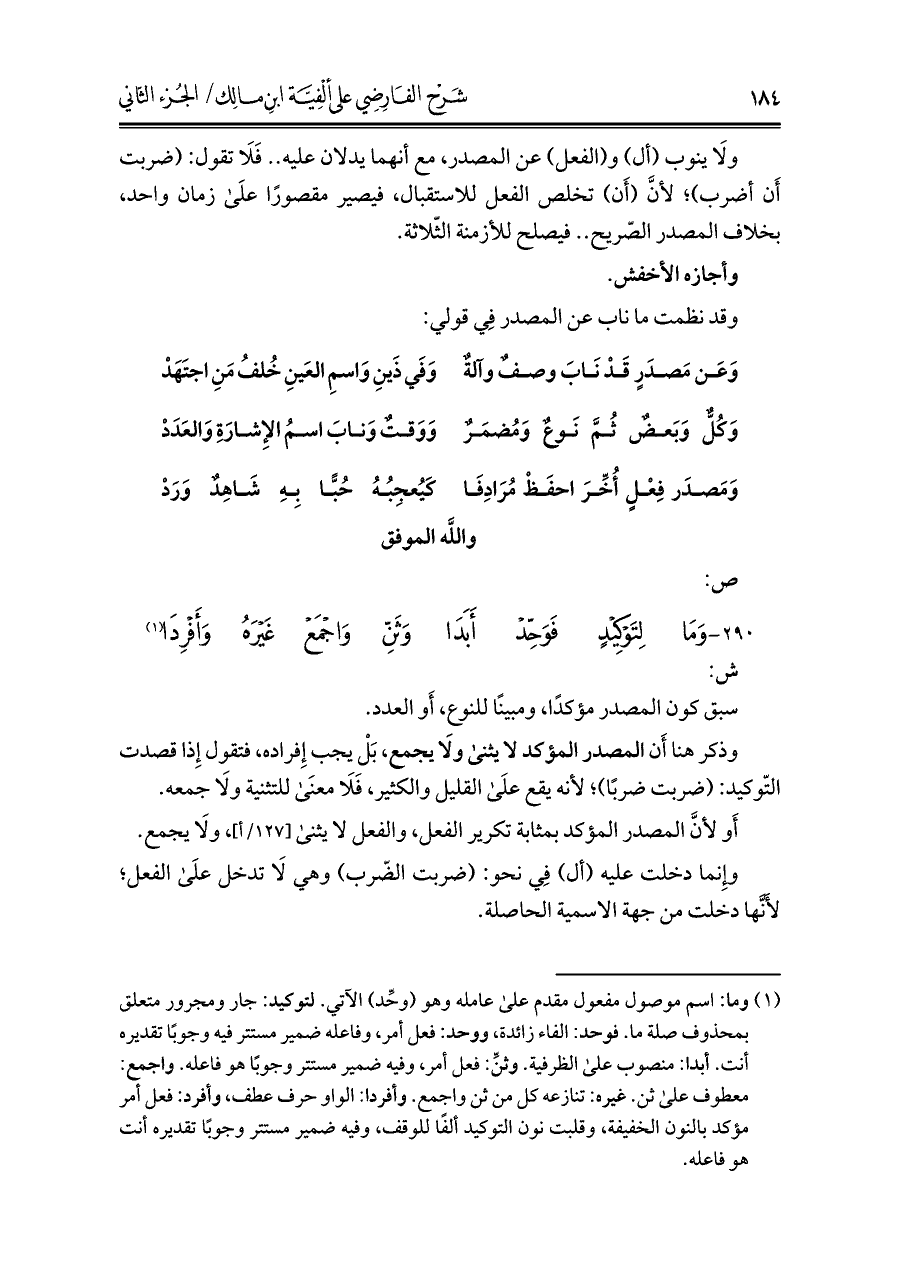 ١٨٤ شرح الفارضي على ألفية ابن مالك/ الجزء الثاني
ولَا ينوب (أل) و(الفعل) عن المصدر، مع أنهما يدلان عليه.. فَلَا تقول: (ضربت
أَن أضرب)؛ لأنَّ (أَن) تخلص الفعل للاستقبال، فيصير مقصورًا علَىٰ زمان واحد،
بخلاف المصدر الصّريح.. فيصلح للأزمنة الثّلاثة.
وأجازه الأخفش.
وقد نظمت ما ناب عن المصدر فِي قولي:
وَعَـن مَصـدَرٍ قَـدْ نَـابَ وصـفٌ وآلةٌ وَفَي ذَينِ وَاسمِ العَينِ خُلفُ مَنِ اجتَهَدْ
وَكُلٌّ وَبَعـضٌ ثُـمَّ نَـوعٌ وَمُضمَـرٌ وَوَقـتٌ وَنـابَ اسـمُ الإِشـارَةِ وَالعَدَدْ
وَمَصـدَر فِعْـلٍ أُخِّـرَ احفَـظْ مُرَادِفَـا كَيُعجِبُـهُ حُبًّـا بِـهِ شَـاهِدٌ وَرَدْ
واللَّه الموفق
ص:
٢٩٠-وَمَا لِتَوْكِيْدٍ فَوَحِّدْ أَبَدَا وَثَنِّ وَاجْمَعْ غَيْرَهُ وَأَفْرِدَا(١)
ش:
سبق كون المصدر مؤكدًا، ومبينًا للنوع، أَو العدد.
وذكر هنا أَن المصدر المؤكد لا يثنىٰ ولَا يجمع، بَلْ يجب إِفراده، فتقول إِذا قصدت
التّوكيد: (ضربت ضربًا)؛ لأنه يقع علَىٰ القليل والكثير، فَلَا معنَىٰ للتثنية ولَا جمعه.
أَو لأنَّ المصدر المؤكد بمثابة تكرير الفعل، والفعل لا يثنىٰ [١٢٧/أ]، ولَا يجمع.
وإِنما دخلت عليه (أل) فِي نحو: (ضربت الضّرب) وهي لَا تدخل علَىٰ الفعل؛
لأَنَّها دخلت من جهة الاسمية الحاصلة.
(١) وما: اسم موصول مفعول مقدم علىٰ عامله وهو (وحِّد) الآتي. لتوكيد: جار ومجرور متعلق
بمحذوف صلة ما. فوحد: الفاء زائدة، ووحد: فعل أمر، وفاعله ضمير مستتر فيه وجوبًا تقديره
أنت. أبدا: منصوب علىٰ الظرفية. وثنِّ: فعل أمر، وفيه ضمير مستتر وجوبًا هو فاعله. واجمع:
معطوف علىٰ ثن. غيره: تنازعه كل من ثن واجمع. وأفردا: الواو حرف عطف، وأفرد: فعل أمر
مؤكد بالنون الخفيفة، وقلبت نون التوكيد ألفًا للوقف، وفيه ضمير مستتر وجوبًا تقديره أنت
هو فاعله.